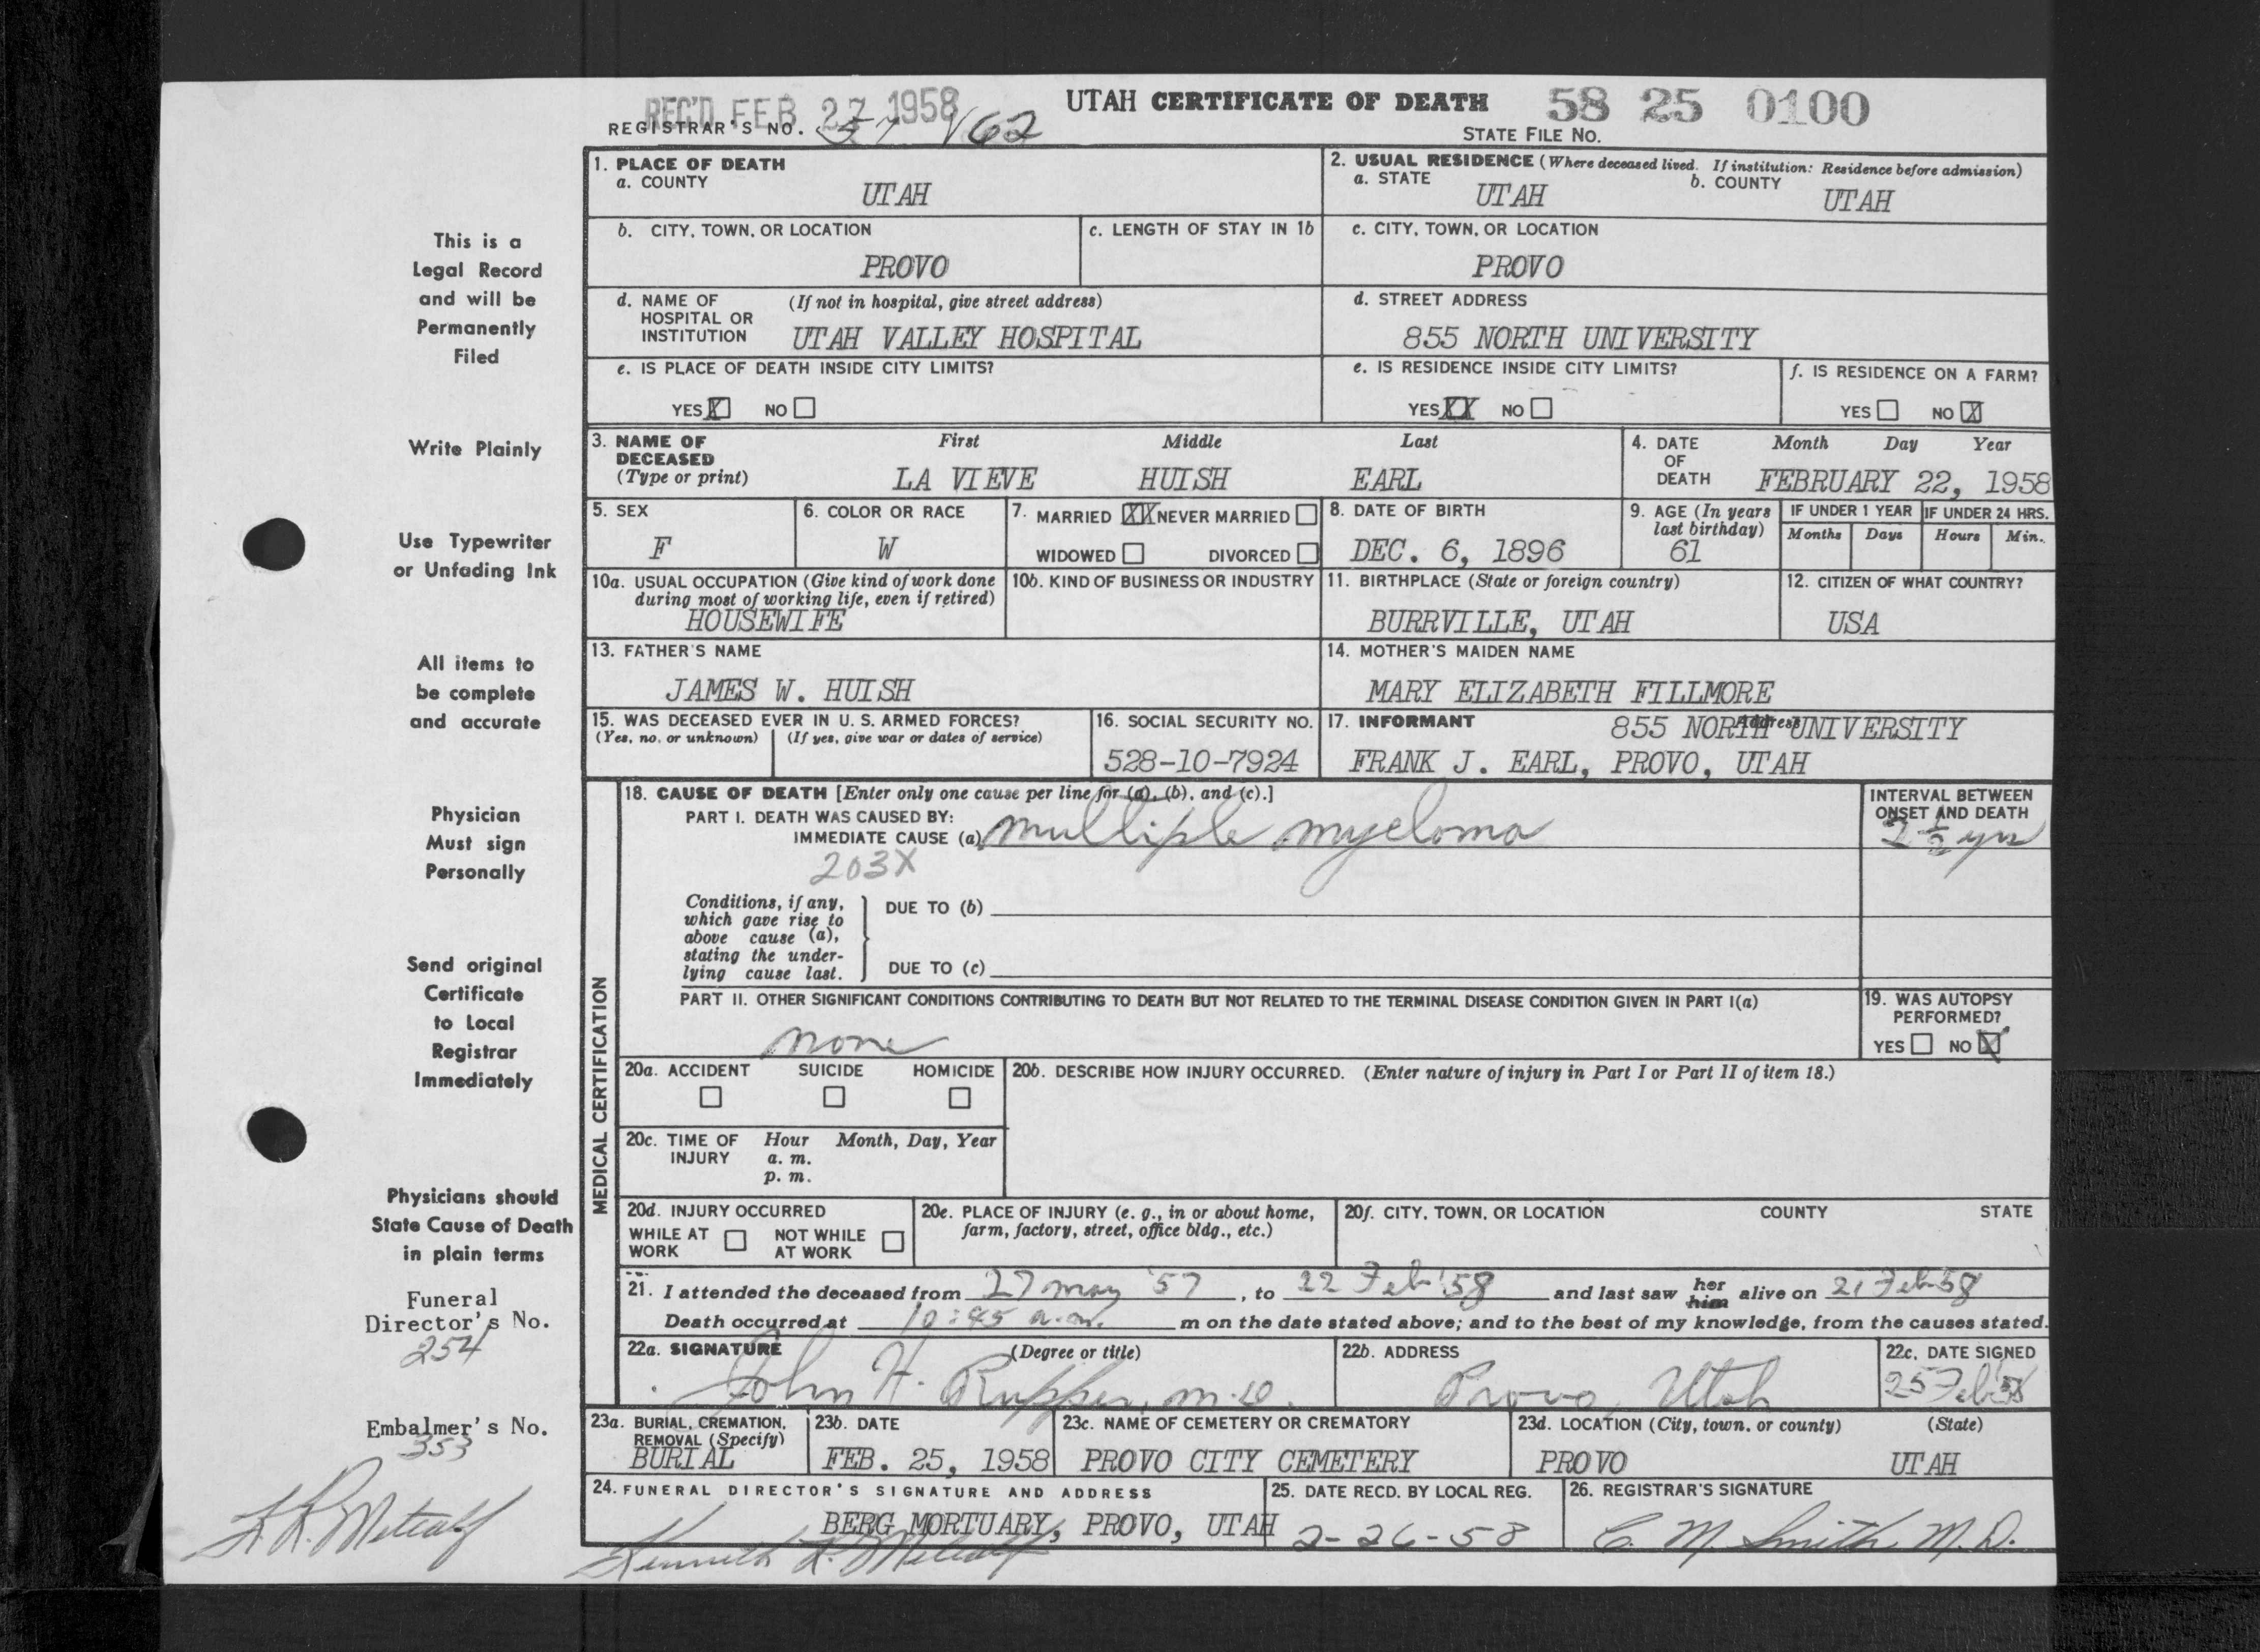 REC'D FEB 27 1958
UTAH CERTIFICATE OF DEATH 58 25 0100
REGISTRAR'S NO. 162
STATE FILE NO.
This is a
Legal Record
and will be
Permanently
Filed
Write Plainly
Use Typewriter
or Unfading Ink
All items to
be complete
and accurate
Physician
Must sign
Personally
Send original
Certificate
to Local
Registrar
Immediately
Physicians should
State Cause of Death
in plain terms
Funeral
Director's No.
254
Embalmer's No.
353
K R. Metcalf
1. PLACE OF DEATH
a. COUNTY
UTAH
2. USUAL RESIDENCE (Where deceased lived. If institution: Residence before admission)
a. STATE
UTAH
b. COUNTY
UTAH
b. CITY, TOWN, OR LOCATION
PROVO
c. LENGTH OF STAY IN 1b
c. CITY, TOWN, OR LOCATION
PROVO
d. NAME OF (If not in hospital, give street address)
HOSPITAL OR
INSTITUTION UTAH VALLEY HOSPITAL
d. STREET ADDRESS
855 NORTH UNIVERSITY
e. IS PLACE OF DEATH INSIDE CITY LIMITS?
YES X NO
e. IS RESIDENCE INSIDE CITY LIMITS?
YES XX NO
f. IS RESIDENCE ON A FARM?
YES NO X
3. NAME OF DECEASED (Type or print)
First Middle Last
LA VIEVE HUISH EARL
4. DATE OF DEATH
Month Day Year
FEBRUARY 22, 1958
5. SEX
F
6. COLOR OR RACE
W
7. MARRIED XX NEVER MARRIED
WIDOWED DIVORCED
8. DATE OF BIRTH
DEC. 6, 1896
9. AGE (In years last birthday)
61
IF UNDER 1 YEAR
Months Days
IF UNDER 24 HRS.
Hours Min.
10a. USUAL OCCUPATION (Give kind of work done
during most of working life, even if retired)
HOUSEWIFE
10b. KIND OF BUSINESS OR INDUSTRY
11. BIRTHPLACE (State or foreign country)
BURRVILLE, UTAH
12. CITIZEN OF WHAT COUNTRY?
USA
13. FATHER'S NAME
JAMES W. HUISH
14. MOTHER'S MAIDEN NAME
MARY ELIZABETH FILLMORE
15. WAS DECEASED EVER IN U. S. ARMED FORCES?
(Yes, no, or unknown) (If yes, give war or dates of service)
16. SOCIAL SECURITY NO.
528-10-7924
17. INFORMANT Address
855 NORTH UNIVERSITY
FRANK J. EARL, PROVO, UTAH
MEDICAL CERTIFICATION
18. CAUSE OF DEATH [Enter only one cause per line for (a), (b), and (c).]
PART I. DEATH WAS CAUSED BY:
IMMEDIATE CAUSE (a) multiple myeloma
203X
INTERVAL BETWEEN
ONSET AND DEATH
2 1/2 yrs
Conditions, if any,
which gave rise to
above cause (a),
stating the under-
lying cause last.
DUE TO (b)
DUE TO (c)
PART II. OTHER SIGNIFICANT CONDITIONS CONTRIBUTING TO DEATH BUT NOT RELATED TO THE TERMINAL DISEASE CONDITION GIVEN IN PART I(a)
none
19. WAS AUTOPSY
PERFORMED?
YES NO X
20a. ACCIDENT SUICIDE HOMICIDE
20b. DESCRIBE HOW INJURY OCCURRED. (Enter nature of injury in Part I or Part II of item 18.)
20c. TIME OF INJURY
Hour Month, Day, Year
a. m.
p. m.
20d. INJURY OCCURRED
WHILE AT WORK NOT WHILE AT WORK
20e. PLACE OF INJURY (e. g., in or about home,
farm, factory, street, office bldg., etc.)
20f. CITY, TOWN, OR LOCATION COUNTY STATE
21. I attended the deceased from 27 may '57, to 22 Feb '58 and last saw her him alive on 21 Feb 58
Death occurred at 10:45 a.m. m on the date stated above; and to the best of my knowledge, from the causes stated.
22a. SIGNATURE (Degree or title)
John H. Rupper, m.D.
22b. ADDRESS
Provo, Utah
22c. DATE SIGNED
25 Feb 58
23a. BURIAL, CREMATION,
REMOVAL (Specify)
BURIAL
23b. DATE
FEB. 25, 1958
23c. NAME OF CEMETERY OR CREMATORY
PROVO CITY CEMETERY
23d. LOCATION (City, town, or county) (State)
PROVO UTAH
24. FUNERAL DIRECTOR'S SIGNATURE AND ADDRESS
BERG MORTUARY, PROVO, UTAH
Kenneth R. Metcalf
25. DATE RECD. BY LOCAL REG.
2-26-58
26. REGISTRAR'S SIGNATURE
C. M. Smith M.D.